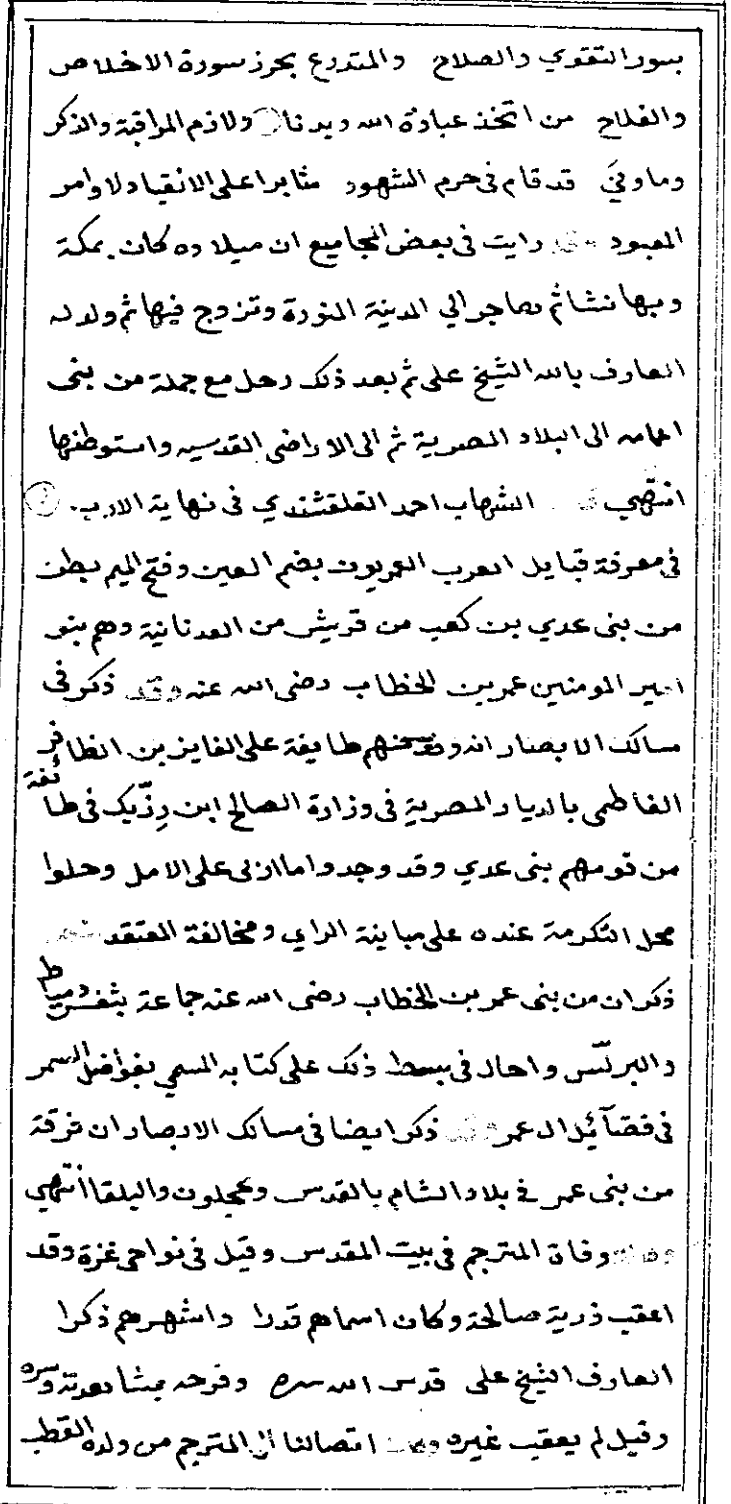 بسور التقوي والصلاح والمتدرع بحرز سورة الاخلاص
والفلاح من اتخذ عبادة الله ديدنا ولازم المراقبة والذكر
وماونيَ قد قام في حرم الشهود مثابرا على الانقياد لاوامر
المعبود رايت في بعض المجاميع ان ميلاده كان بمكة
وبها نشا ثم هاجر الي المدينة المنورة وتزوج فيها ثم ولد له
العارف بالله الشيخ على ثم بعد ذلك رحل مع جملة من بنى
اعمامه الى البلاد المصرية ثم الى الاراضى القدسيه واستوطنها
انتهي الشهاب احمد القلقشندي في نهاية الارب
في معرفة قبايل العرب العمريون بضم العين وفتح الميم بطن
من بنى عدي بن كعب من قريش من العدنانية وهم بنو
امير المومنين عمر بن الخطاب رضى الله عنه وقد ذكر في
مسالك الابصار انه وفد منهم طايفة على الفايز بن الظافر
الفاطمى بالديار المصرية في وزارة الصالح ابن رزّيك في طائفة
من قومهم بنى عدي وقد وجدوا ما اربى على الامل وحلوا
محل التكرمة عنده على مباينة الراي ومخالفة المعتقد
ذكر ان من بنى عمر بن الخطاب رضى الله عنه جماعة بثغر دمياط
والبرلّس واحال في بسط ذلك على كتابه المسمي بفواضل السمر
في فضآئل ال عمر ذكر ايضا في مسالك الابصار ان فرقة
من بنى عمر في بلاد الشام بالقدس وعجلون والبلقا انتهي
وفاة المترجم في بيت المقدس وقيل في نواحى غزة وقد
اعقب ذرية صالحة وكان اسماهم قدرا واشهرهم ذكرا
العارف الشيخ على قدس الله سره وفرحه بمشاهدته وسره
وقيل لم يعقب غيره اتصالنا الى المترجم من ولده القطب